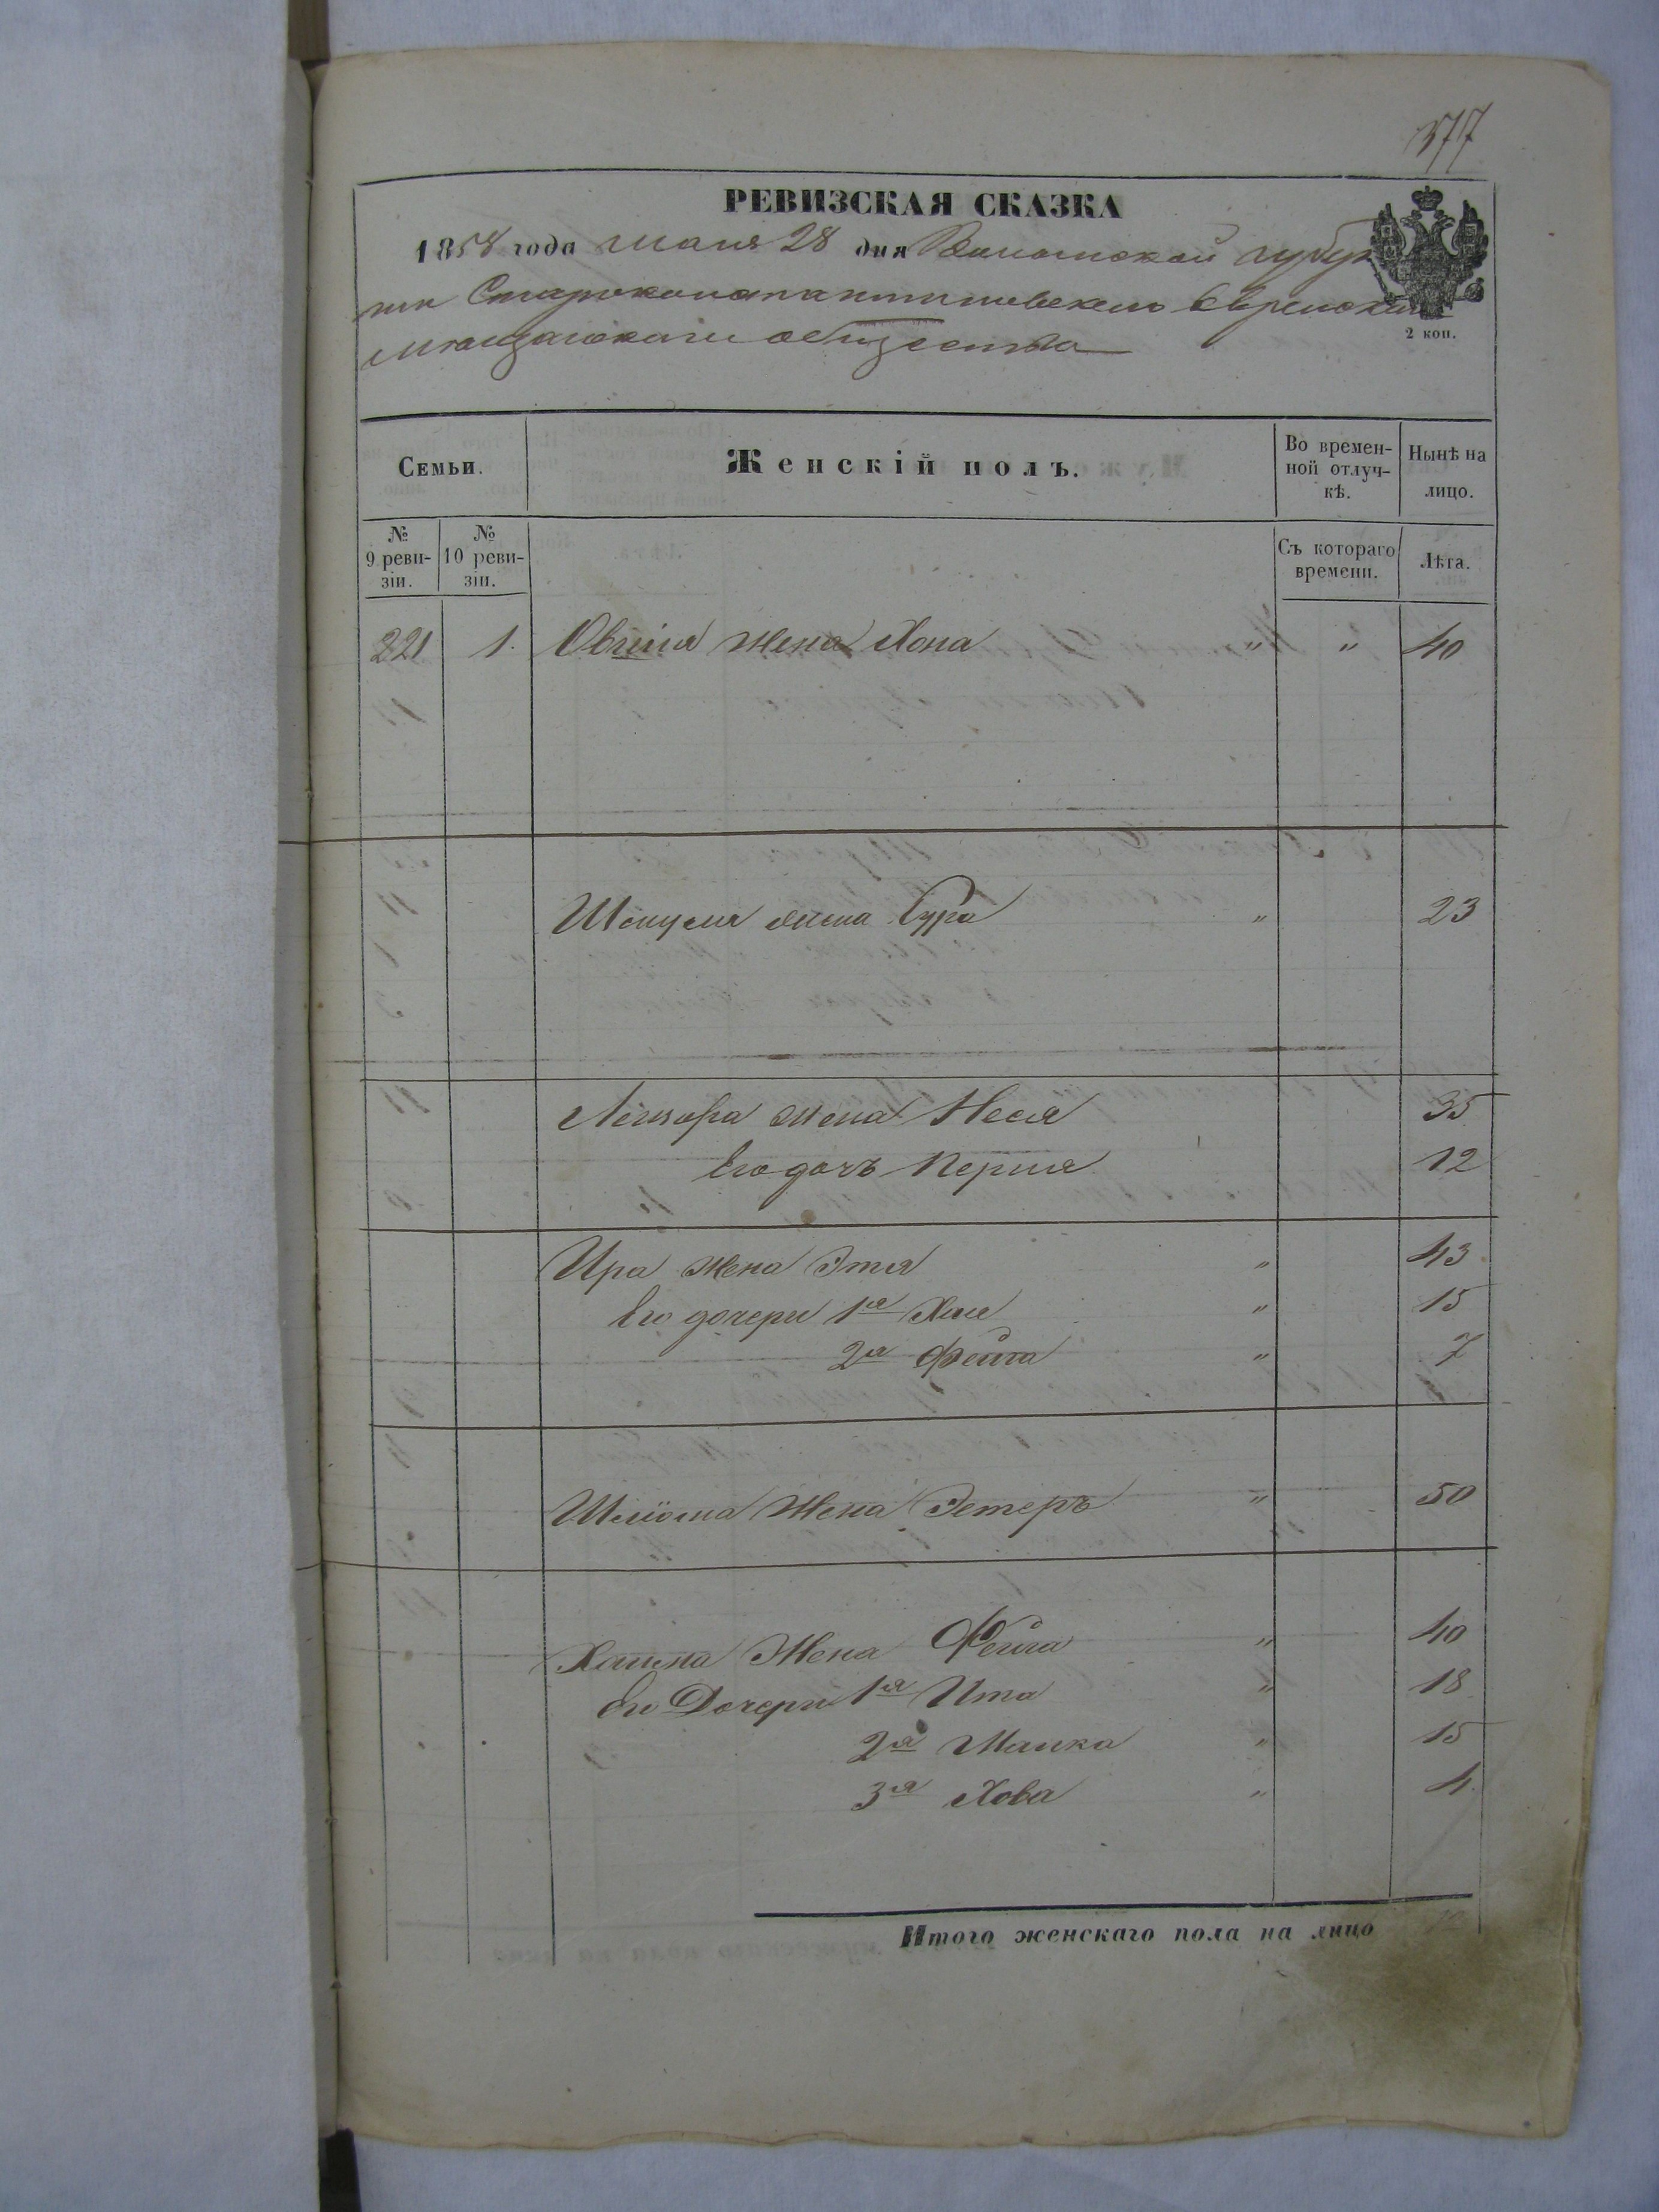 377
РЕВИЗСКАЯ СКАЗКА
1858 года маия 28 дня Волынской губер
нии Староконстантиновскаго Еврейскаго
мѣщанскаго общества
2 коп.
Семьи. Женскій полъ. Во времен-ной отлуч-кѣ. Нынѣ на лицо.
№ 9 реви-зіи. № 10 реви-зіи. Съ котораго времени. Лѣта.
221 1. Овшія жена Хона " " 40
жена Сура " 23
Лейзора жена Неся 35
Его дочь Перля 12
Ира жена Этя " 43
Его дочери 1я " 15
2я Фейга " 7
Шлiома Жена Эстеръ " 50
Хаима Жена Фейга " 40
Его Дочери 1я Ита " 18
2я Малка " 15
3я Хова " 4
Итого женскаго пола на лицо 12